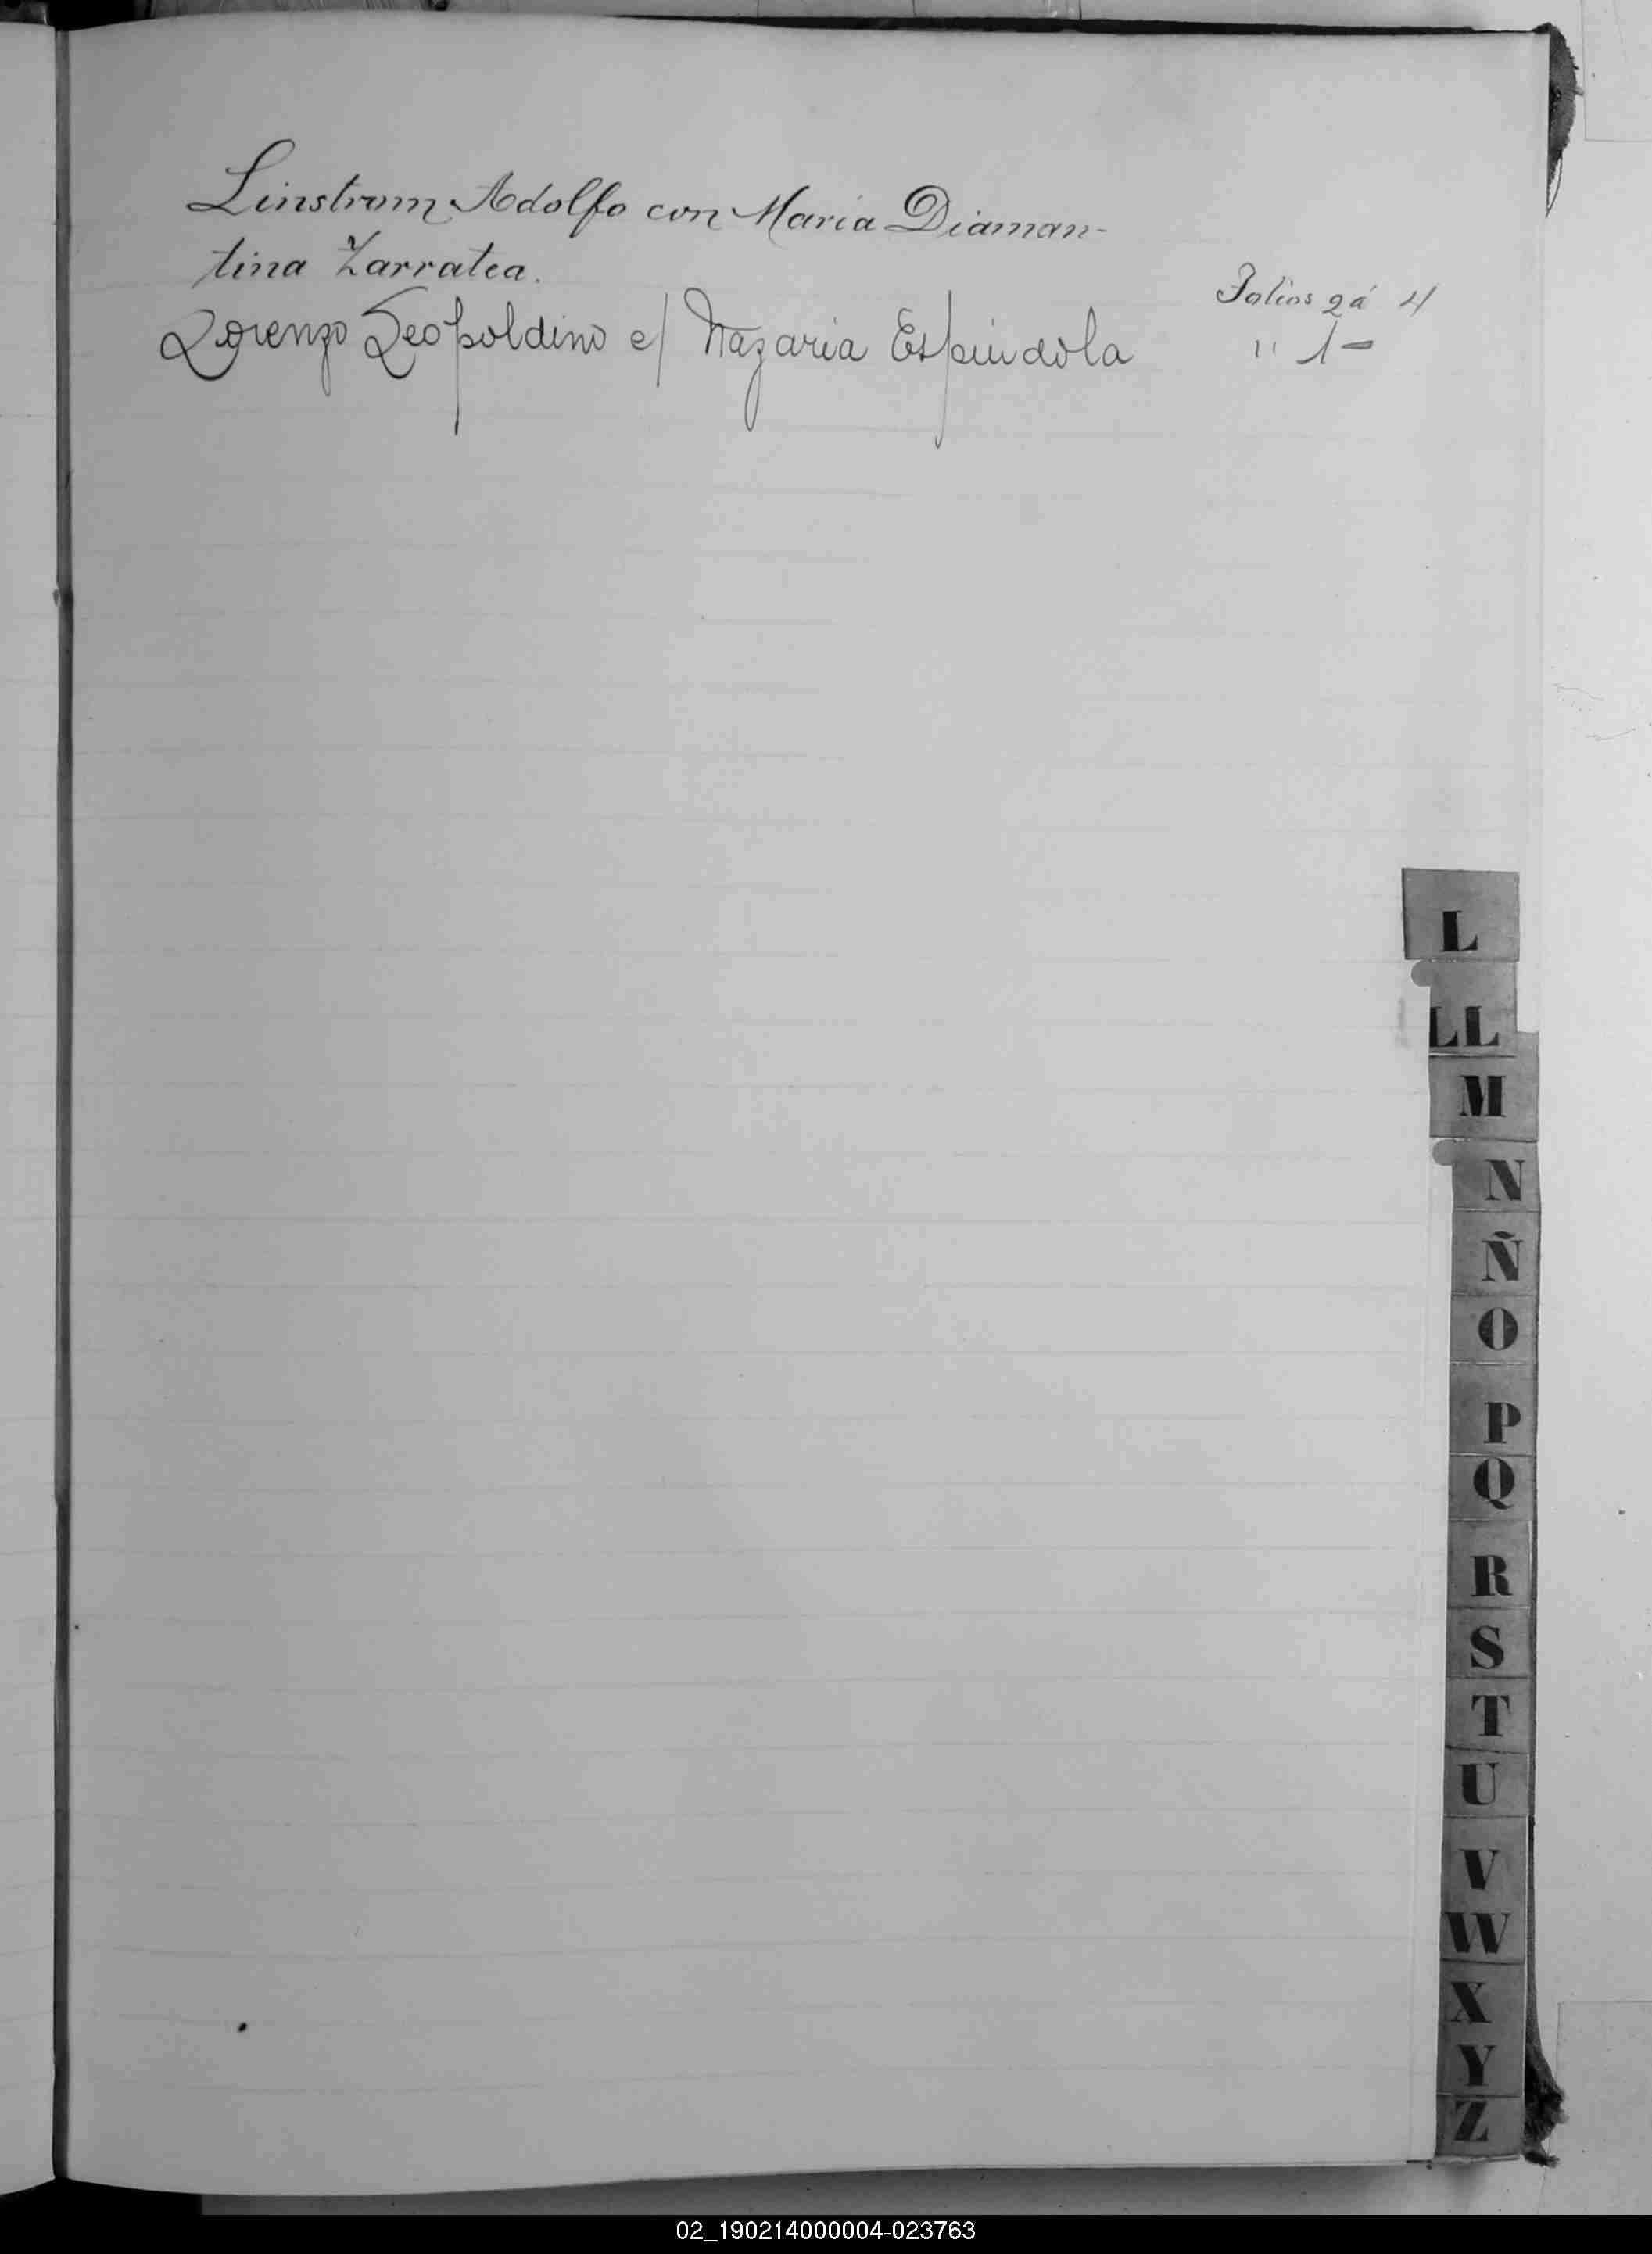 Linstrom Adolfo con Maria Diaman-
tina Zarratea.
Folios 2 á 4
Lorenzo Leopoldino c/ Nazaria Espindola " 1-
L
LL
M
N
Ñ
O
P
Q
R
S
T
U
V
W
X
Y
Z
02_190214000004-023763